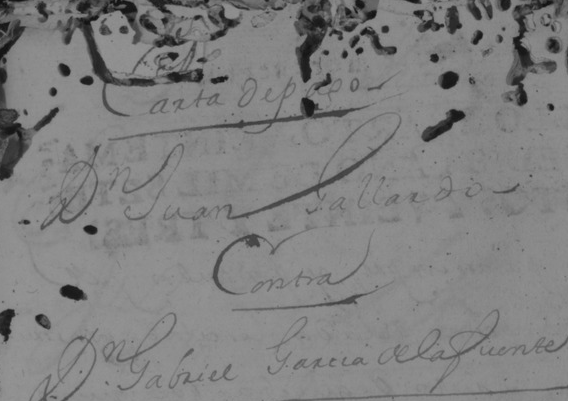 Carta de pago
Dn Juan Gallardo
Contra
Dn Gabriel Garcia de la Fuente